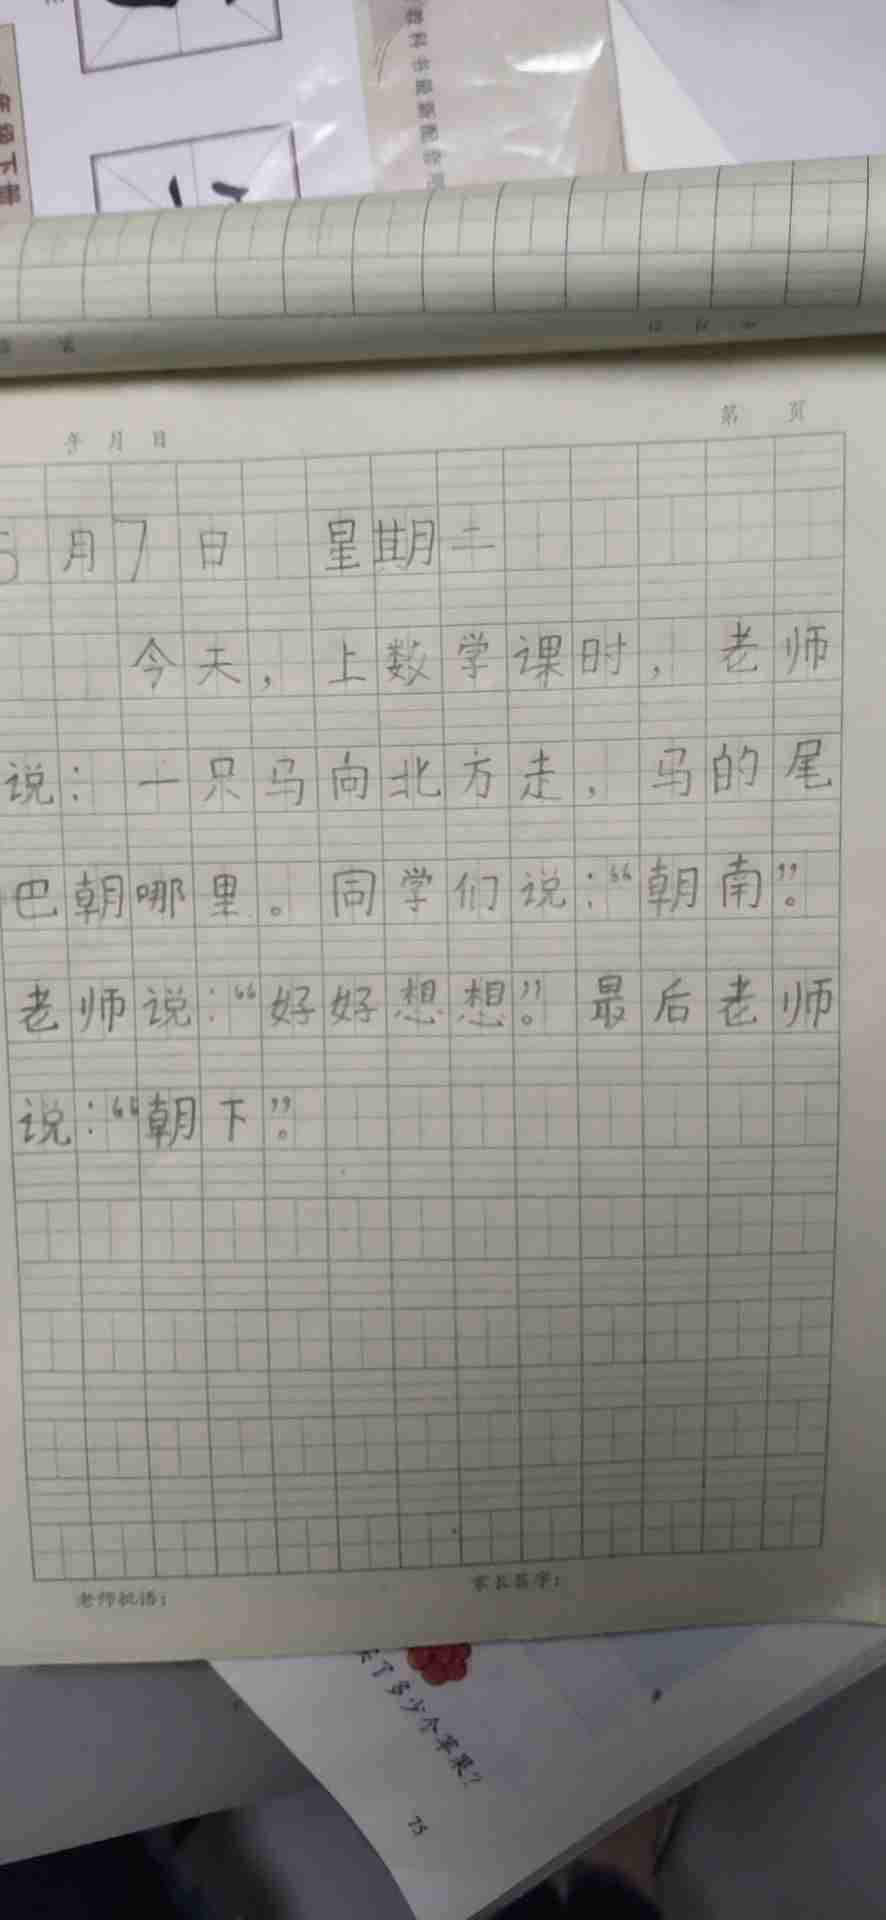 教科书最新配套
年级下册
年 月 日
第 页
5月7日 星期二
今天，上数学课时，老师
说：一只马向北方走，马的尾
巴朝哪里。同学们说：“朝南”。
老师说：“好好想想”。最后老师
说：“朝下”。
老师批语：
家长签字：
了多少个苹果？
75